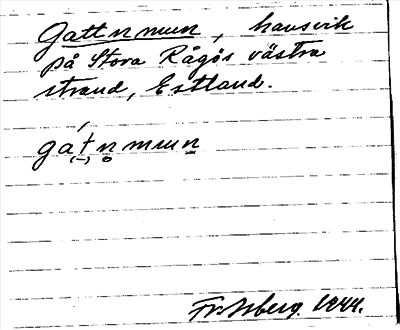 Gattnmun, havsvik
på Stora Rågös västra
strand, Estland.
gatnmun
1944.